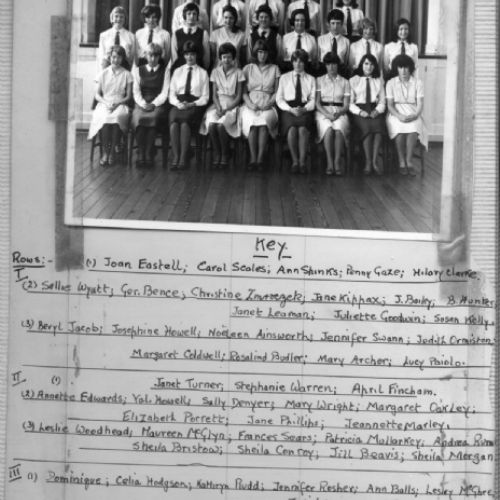 Key
Rows:- (1) Joan Eastell; Carol Scales; Ann Shinks; Penny Gaze; Hilary Clarke.
I
(2) Sallie Wyatt; Ger. Bence; Christine Zmrsezek; Jane Kippax; J. Barky, B. Hunter,
Janet Leaman; Juliette Goodwin; Susan Kelly.
(3) Beryl Jacob; Josephine Howell; Noëleen Ainsworth; Jennifer Swann; Judith Ormiston;
Margaret Coldwell; Rosalind Budler; Mary Archer; Lucy Paiolo.
II (1) Janet Turner; Stephanie Warren; April Fincham.
(2) Annette Edwards; Val. Howells; Sally Denyer; Mary Wright; Margaret Oakley;
Elizabeth Porrett; Jane Phillips; Jeannette Marley.
(3) Leslie Woodhead; Maureen McGlyn; Frances Sears; Patricia Mullarkey; Andrea
Sheila Bristow; Sheila Conroy; Jill Beavis; Sheila Morgan
III (1) Dominique; Celia Hodgson; Kathryn Rudd; Jennifer Resher; Ann Balls; Lesley